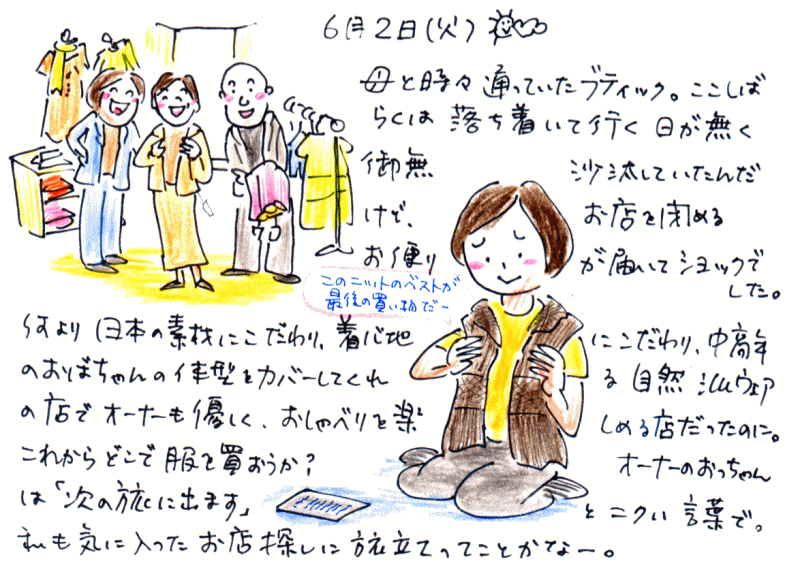 6月2日(火)
母と時々通っていたブティック。ここしば
らくは落ち着いて行く日が無く
御無沙汰していたんだ
けど、お店を閉める
お便りが届いてショックで
した。
このニットのベストが
最後の買い物だー
何より日本の素材にこだわり、着心地にこだわり、中高年
のおばちゃんの体型をカバーしてくれる自然派ウェア
の店でオーナーも優しく、おしゃべりを楽しめる店だったのに。
これからどこで服を買おうか?オーナーのおっちゃん
は「次の旅に出ます」とニクい言葉で。
私も気に入ったお店探しに旅立てってことかなー。